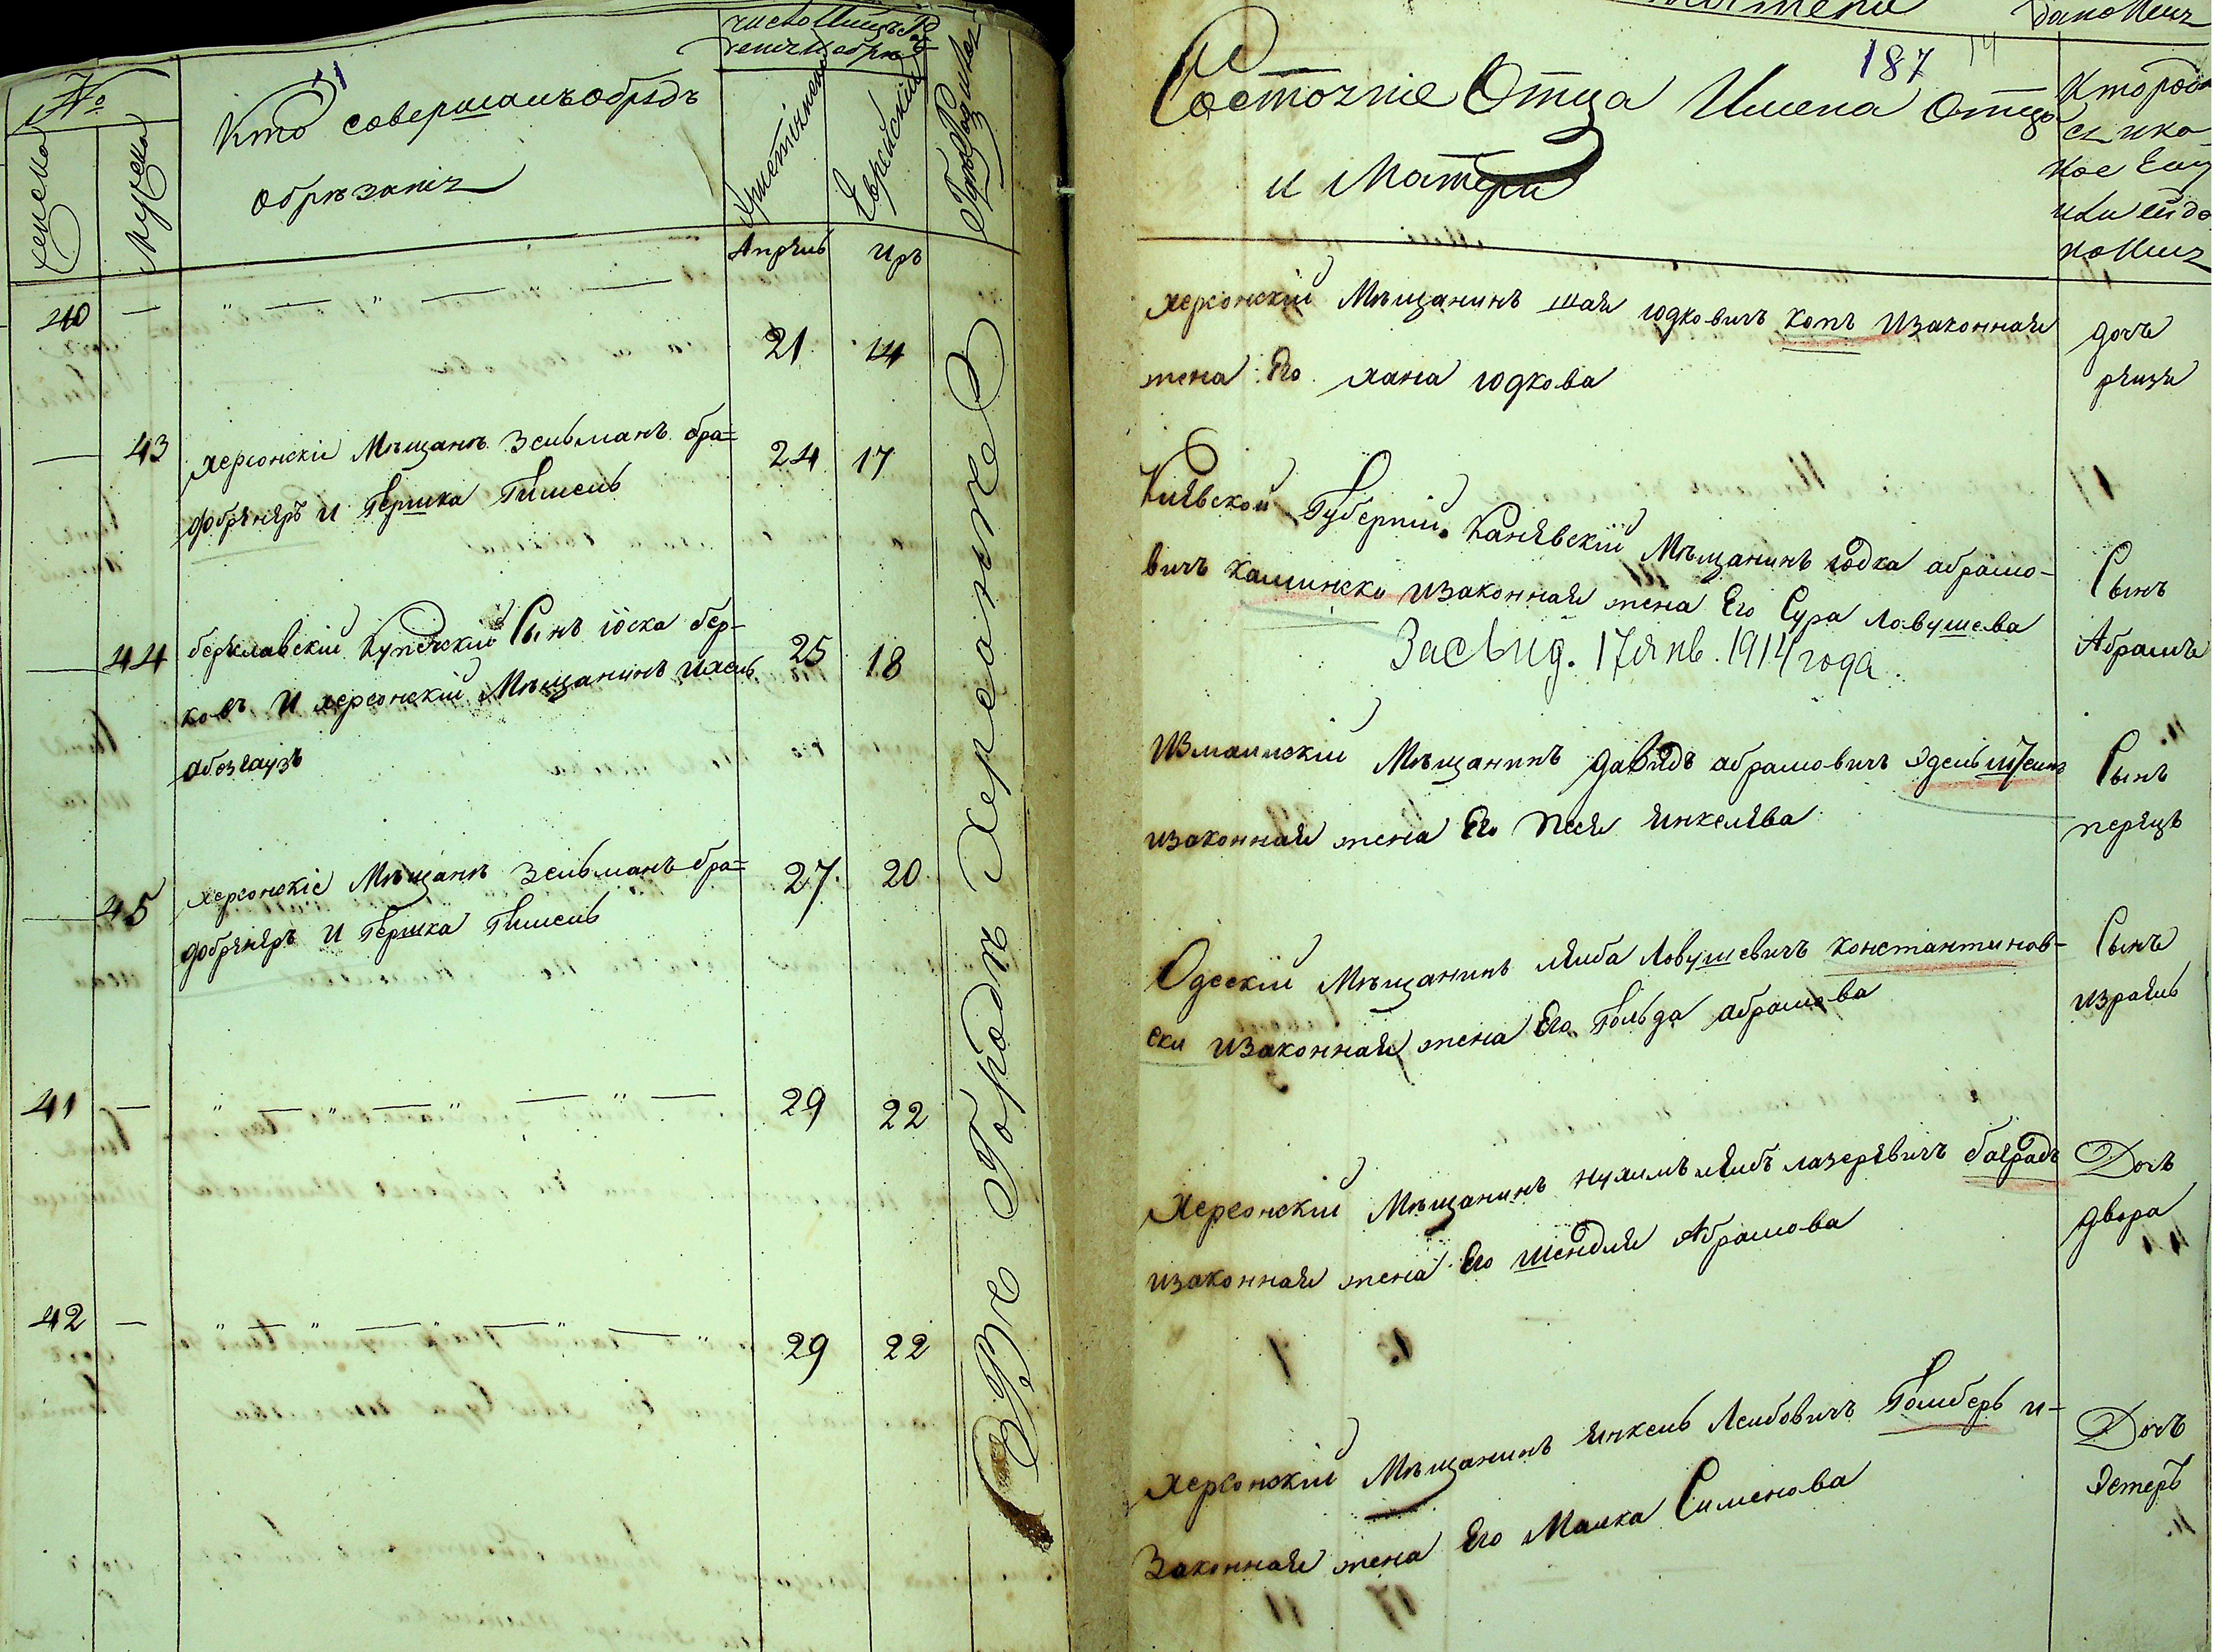 №
женско
мужеско
51
Кто совершалъ обрядъ
обрѣзанія
Христіянскій
Еврейскій
Гдѣ Родился
Апрель
Иръ
40 — " — " — " —
21 14
— 43 херсонскіи Мѣщанѣ Зельманъ бра=
24 17
добрѣнеръ и Гершка Гишель
— 44 бериславскій Купеческій Сынъ іоска бер-
25 18
ковъ и херсонскій Мѣщанинъ ихель
— 45 херсонскіе Мѣщанѣ Зельманъ бра=
27 20
добрѣнеръ и Гершка Гишель
41 — " — " — " — " —
29 22
42 — " — " — " — " —
29 22
Въ Городѣ Херсонѣ
187 14
Состояніе Отца Имена отца
и Матери
Кто родил
ся и ка
кое Ему
или ей да
но Имя
херсонскій Мѣщанинъ шая іодковичъ копъ изаконная
жена Его хана іодкова
дочь
рейзя
Кіевской Губерніи Каневскій Мѣщанинъ іодка абрамо-
вичъ камински изаконная жена Его Сура Ловушева
Засвид. 17 янв. 1914 года
Сынъ
Абрамъ
Измаилскій Мѣщанинъ давидъ абрамовичъ эдельштеинъ
изаконная жена Его песя янкелева
Сынъ
перецъ
Одескій Мѣщанинъ лейба Ловушевичъ константинов-
ски изаконная жена Его Гольда абрамова
Сынъ
израель
Херсонскій Мѣщанинъ нухимъ лейбъ лазеревичъ баярадъ
изаконная жена Его шендля Абрамова
Дочь
двора
херсонскій Мѣщанинъ янкель Леибовичъ Гомберъ и-
Законная жена Его Малка Сименова
Дочь
эстеръ